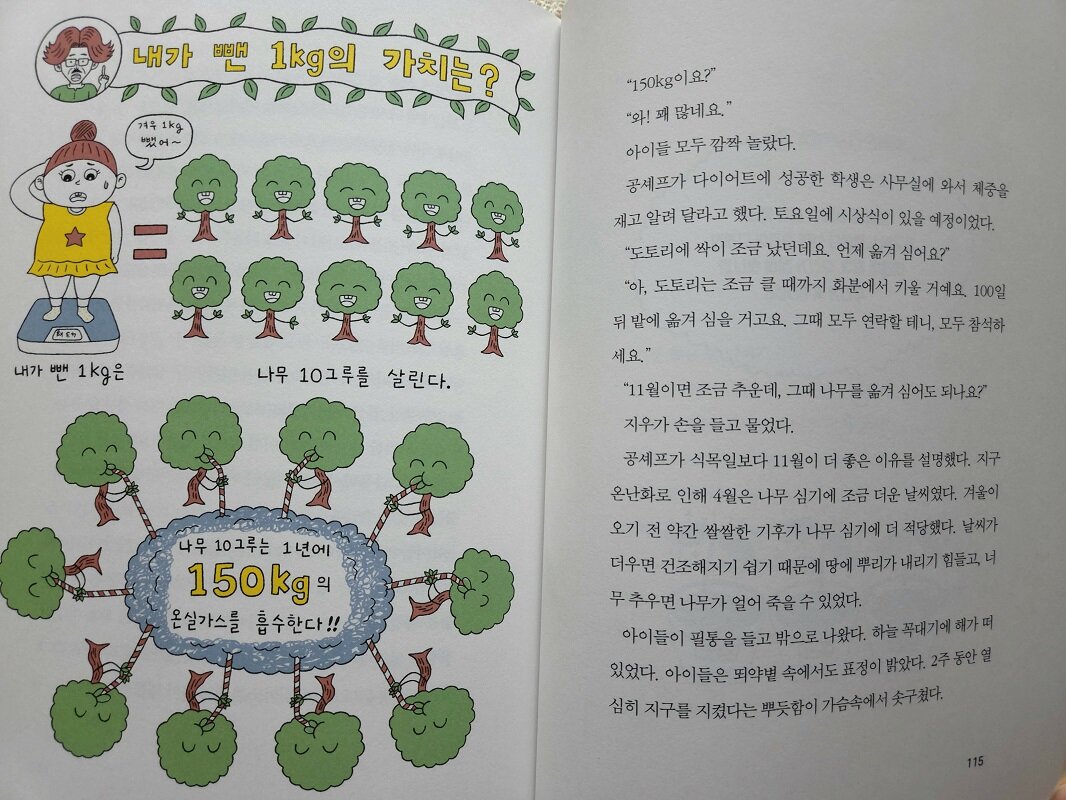 내가 뺀 1kg의 가치는?
겨우 1kg
뺐어~
내가 뺀 1kg은
나무 10그루를 살린다.
나무 10그루는 1년에
150kg의
온실가스를 흡수한다!!
“150kg이요?”
“와! 꽤 많네요.”
아이들 모두 깜짝 놀랐다.
공셰프가 다이어트에 성공한 학생은 사무실에 와서 체중을
재고 알려 달라고 했다. 토요일에 시상식이 있을 예정이었다.
“도토리에 싹이 조금 났던데요. 언제 옮겨 심어요?”
“아, 도토리는 조금 클 때까지 화분에서 키울 거예요. 100일
뒤 밭에 옮겨 심을 거고요. 그때 모두 연락할 테니, 모두 참석하
세요.”
“11월이면 조금 추운데, 그때 나무를 옮겨 심어도 되나요?”
지우가 손을 들고 물었다.
공셰프가 식목일보다 11월이 더 좋은 이유를 설명했다. 지구
온난화로 인해 4월은 나무 심기에 조금 더운 날씨였다. 겨울이
오기 전 약간 쌀쌀한 기후가 나무 심기에 더 적당했다. 날씨가
더우면 건조해지기 쉽기 때문에 땅에 뿌리가 내리기 힘들고, 너
무 추우면 나무가 얼어 죽을 수 있었다.
아이들이 필통을 들고 밖으로 나왔다. 하늘 꼭대기에 해가 떠
있었다. 아이들은 뙤약볕 속에서도 표정이 밝았다. 2주 동안 열
심히 지구를 지켰다는 뿌듯함이 가슴속에서 솟구쳤다.
115